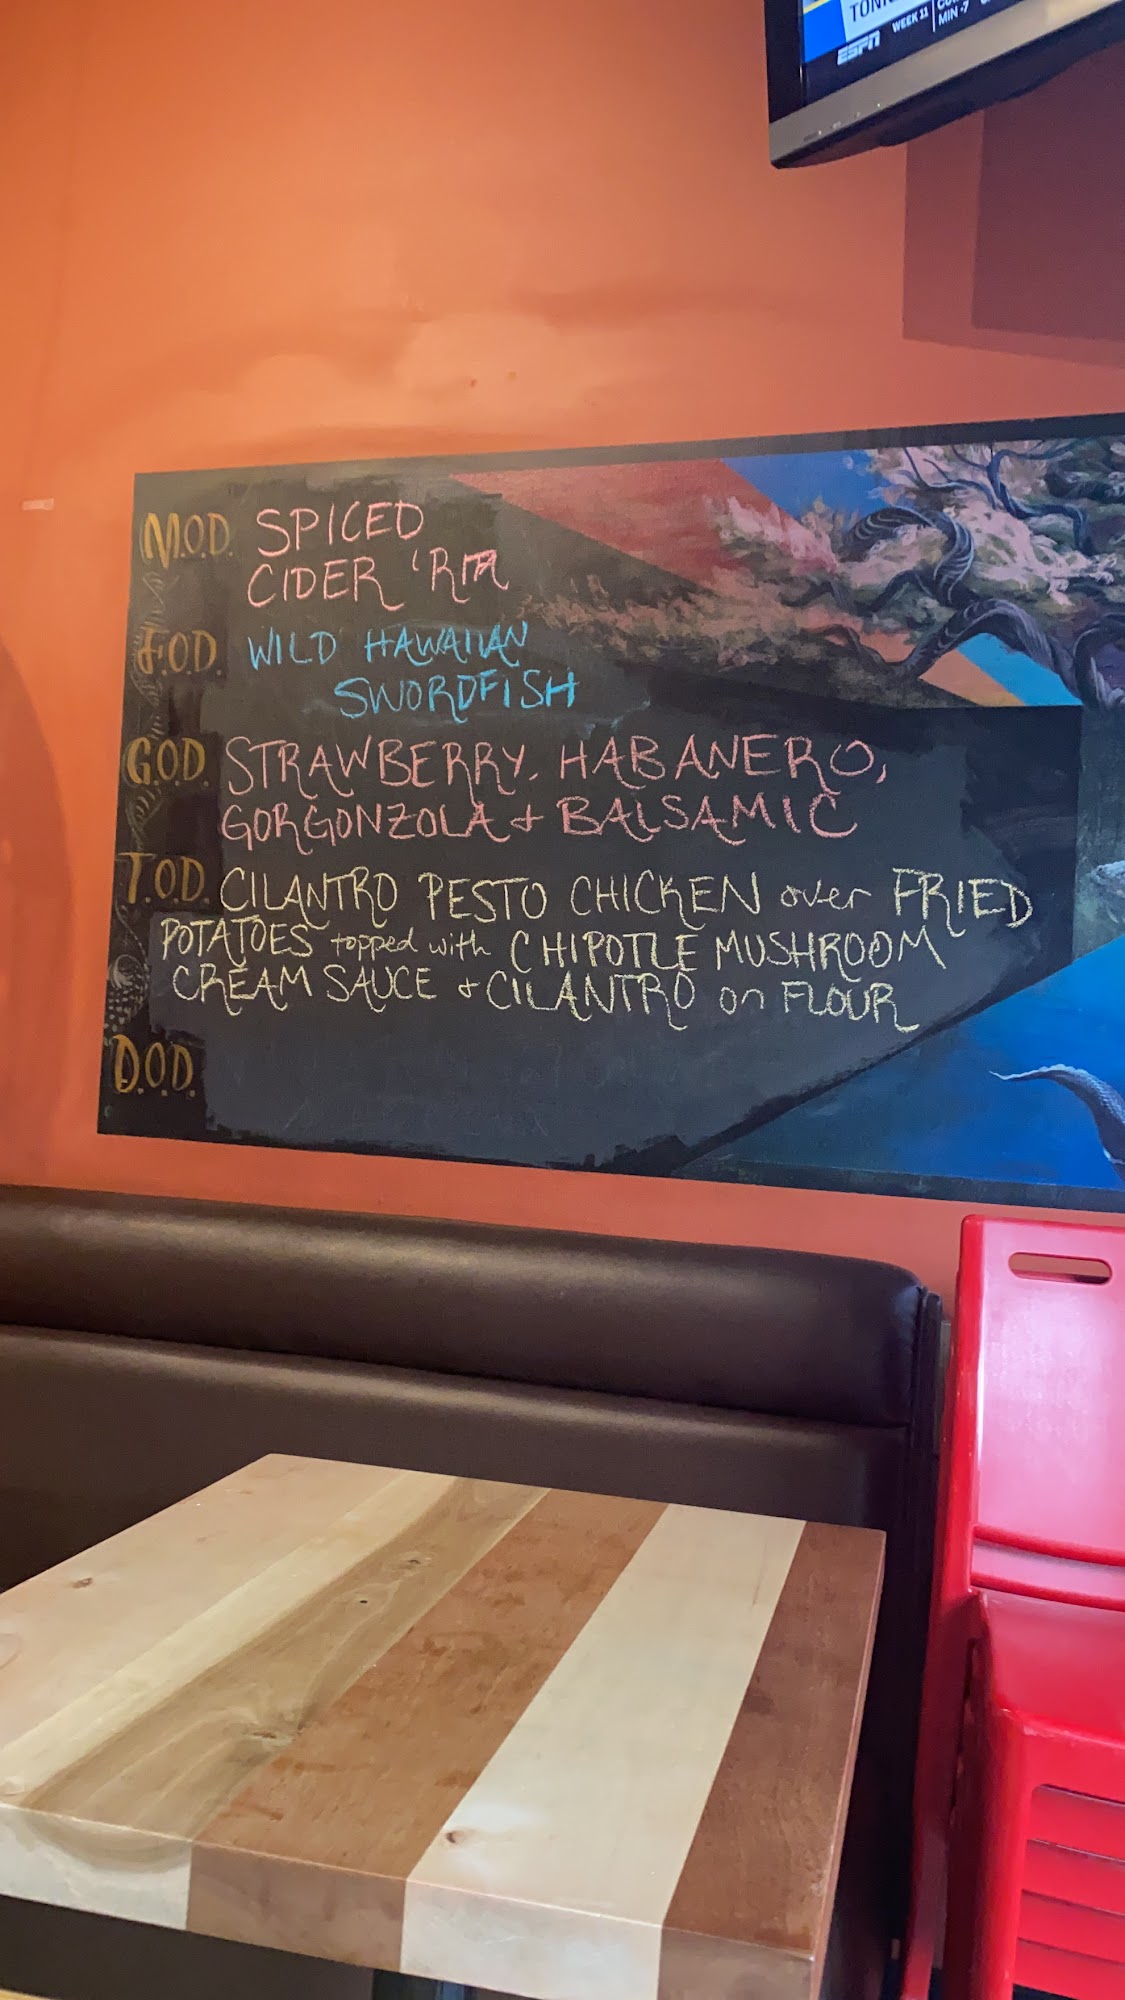 TONI
ESPN
WEEK 11
MIN -7
M.O.D. SPICED
CIDER 'RITA
F.O.D. WILD HAWAIIAN
SWORDFISH
G.O.D. STRAWBERRY, HABANERO,
GORGONZOLA & BALSAMIC
T.O.D. CILANTRO PESTO CHICKEN over FRIED
POTATOES topped with CHIPOTLE MUSHROOM
CREAM SAUCE & CILANTRO on FLOUR
D.O.D.